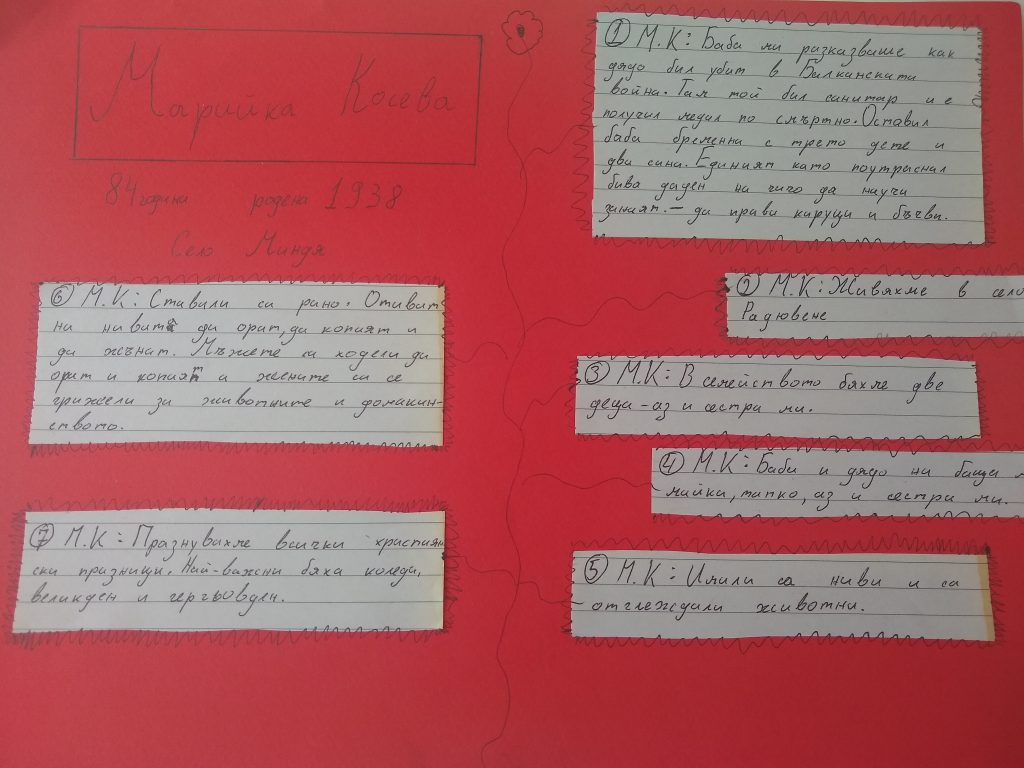 Марийка Косева
84 години родена 1938
Село Миндя
① М.К: Баба ми разказваше как
дядо бил убит в Балканската
война. Там той бил санитар и е
получил медал по смъртно. Оставил
баба бременна с трето дете и
два сина. Единият като поутраснал
бива даден на чичо да научи
занаят. – да прави каруци и бъчви.
② М.К: Живяхме в село
Радювене
③ М.К: В семейството бяхме две
деца – аз и сестра ми.
④ М.К: Баба и дядо на баща
майка, татко, аз и сестра ми.
⑤ М.К: Имали са ниви и са
отглеждали животни.
⑥ М.К: Ставали са рано. Отиват
на нивата да орат, да копаят и
да жънат. Мъжете са ходели да
орат и копаят а жените са се
грижели за животните и домакин-
ството.
⑦ М.К: Празнувахме всички християн
ски празници. Най-важни бяха коледа,
великден и гергьовден.